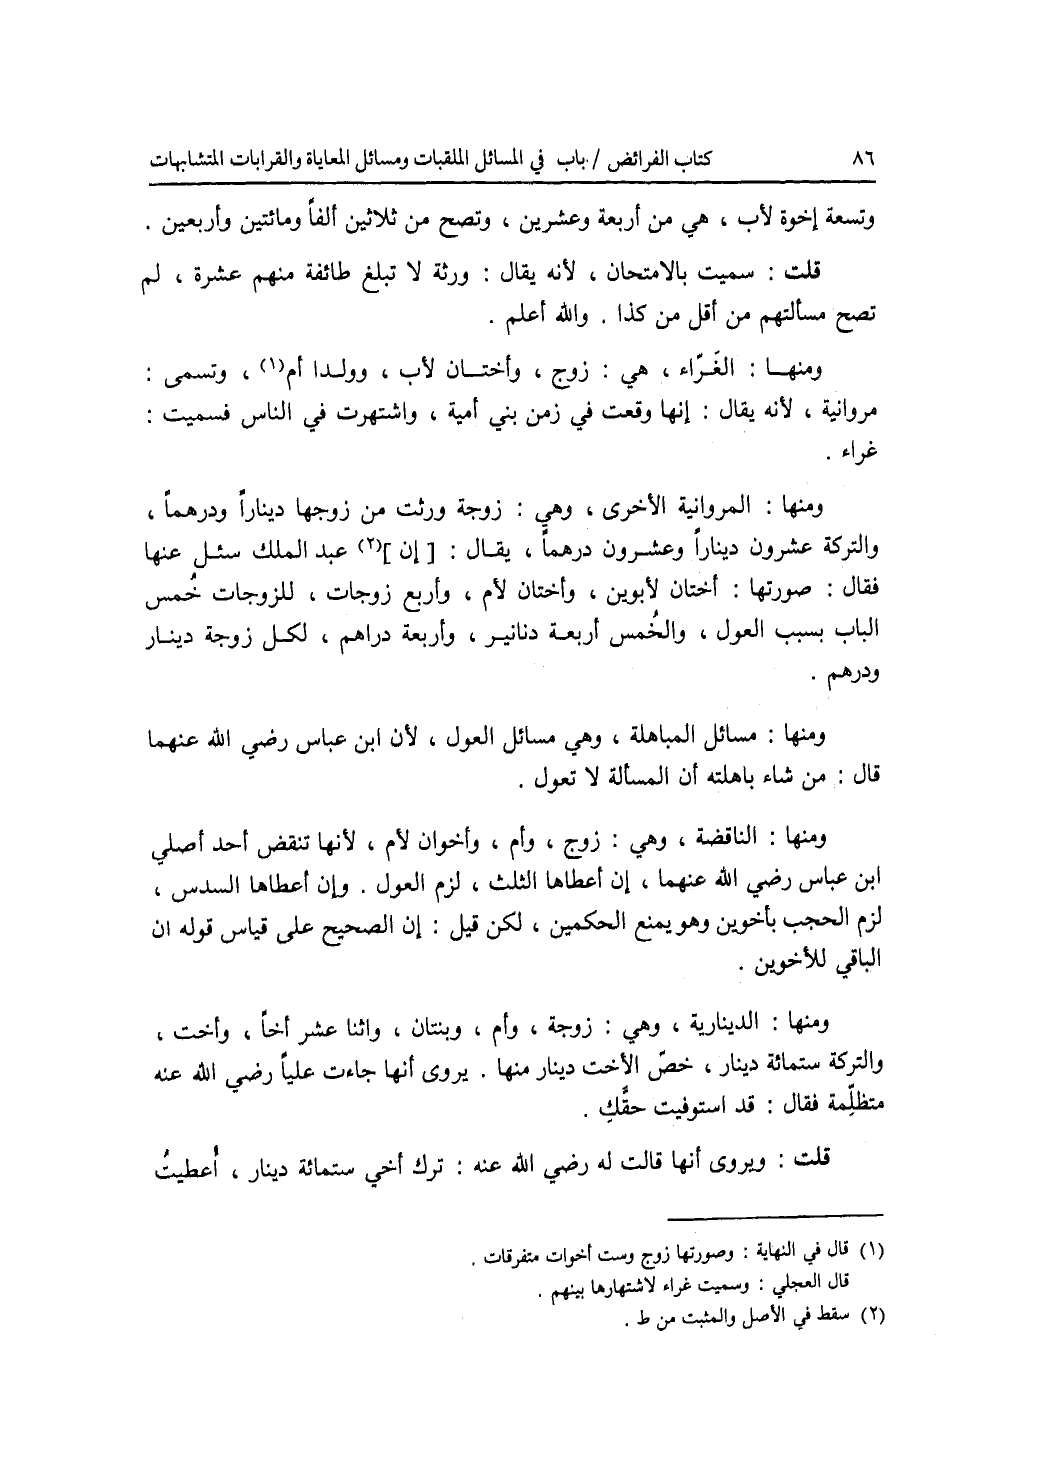 ٨٦ كتاب الفرائض / باب في المسائل الملقبات ومسائل المعاياة والقرابات المتشابهات
وتسعة إخوة لأب ، هي من أربعة وعشرين ، وتصح من ثلاثين ألفاً ومائتين وأربعين .
قلت : سميت بالامتحان ، لأنه يقال : ورثة لا تبلغ طائفة منهم عشرة ، لم
تصح مسألتهم من أقل من كذا . والله أعلم .
ومنهـا : الغَرّاء ، هي : زوج ، وأختـان لأب ، وولـدا أم(١) ، وتسمى :
مروانية ، لأنه يقال : إنها وقعت في زمن بني أمية ، واشتهرت في الناس فسميت :
غراء .
ومنها : المروانية الأخرى ، وهي : زوجة ورثت من زوجها ديناراً ودرهماً ،
والتركة عشرون ديناراً وعشـرون درهماً ، يقـال : [ إن ](٢) عبد الملك سئـل عنها
فقال : صورتها : أختان لأبوين ، وأختان لأم ، وأربع زوجات ، للزوجات خُمس
الباب بسبب العول ، والخُمس أربعـة دنانيـر ، وأربعة دراهم ، لكـل زوجة دينـار
ودرهم .
ومنها : مسائل المباهلة ، وهي مسائل العول ، لأن ابن عباس رضي الله عنهما
قال : من شاء باهلته أن المسألة لا تعول .
ومنها : الناقضة ، وهي : زوج ، وأم ، وأخوان لأم ، لأنها تنقض أحد أصلي
ابن عباس رضي الله عنهما ، إن أعطاها الثلث ، لزم العول . وإن أعطاها السدس ،
لزم الحجب بأخوين وهو يمنع الحكمين ، لكن قيل : إن الصحيح على قياس قوله ان
الباقي للأخوين .
ومنها : الدينارية ، وهي : زوجة ، وأم ، وبنتان ، واثنا عشر أخاً ، وأخت ،
والتركة ستمائة دينار ، خصّ الأخت دينار منها . يروى أنها جاءت علياً رضي الله عنه
متظلِّمة فقال : قد استوفيت حقَّكِ .
قلت : ويروى أنها قالت له رضي الله عنه : ترك أخي ستمائة دينار ، أُعطيتُ
(١) قال في النهاية : وصورتها زوج وست أخوات متفرقات .
قال العجلي : وسميت غراء لاشتهارها بينهم .
(٢) سقط في الأصل والمثبت من ط .